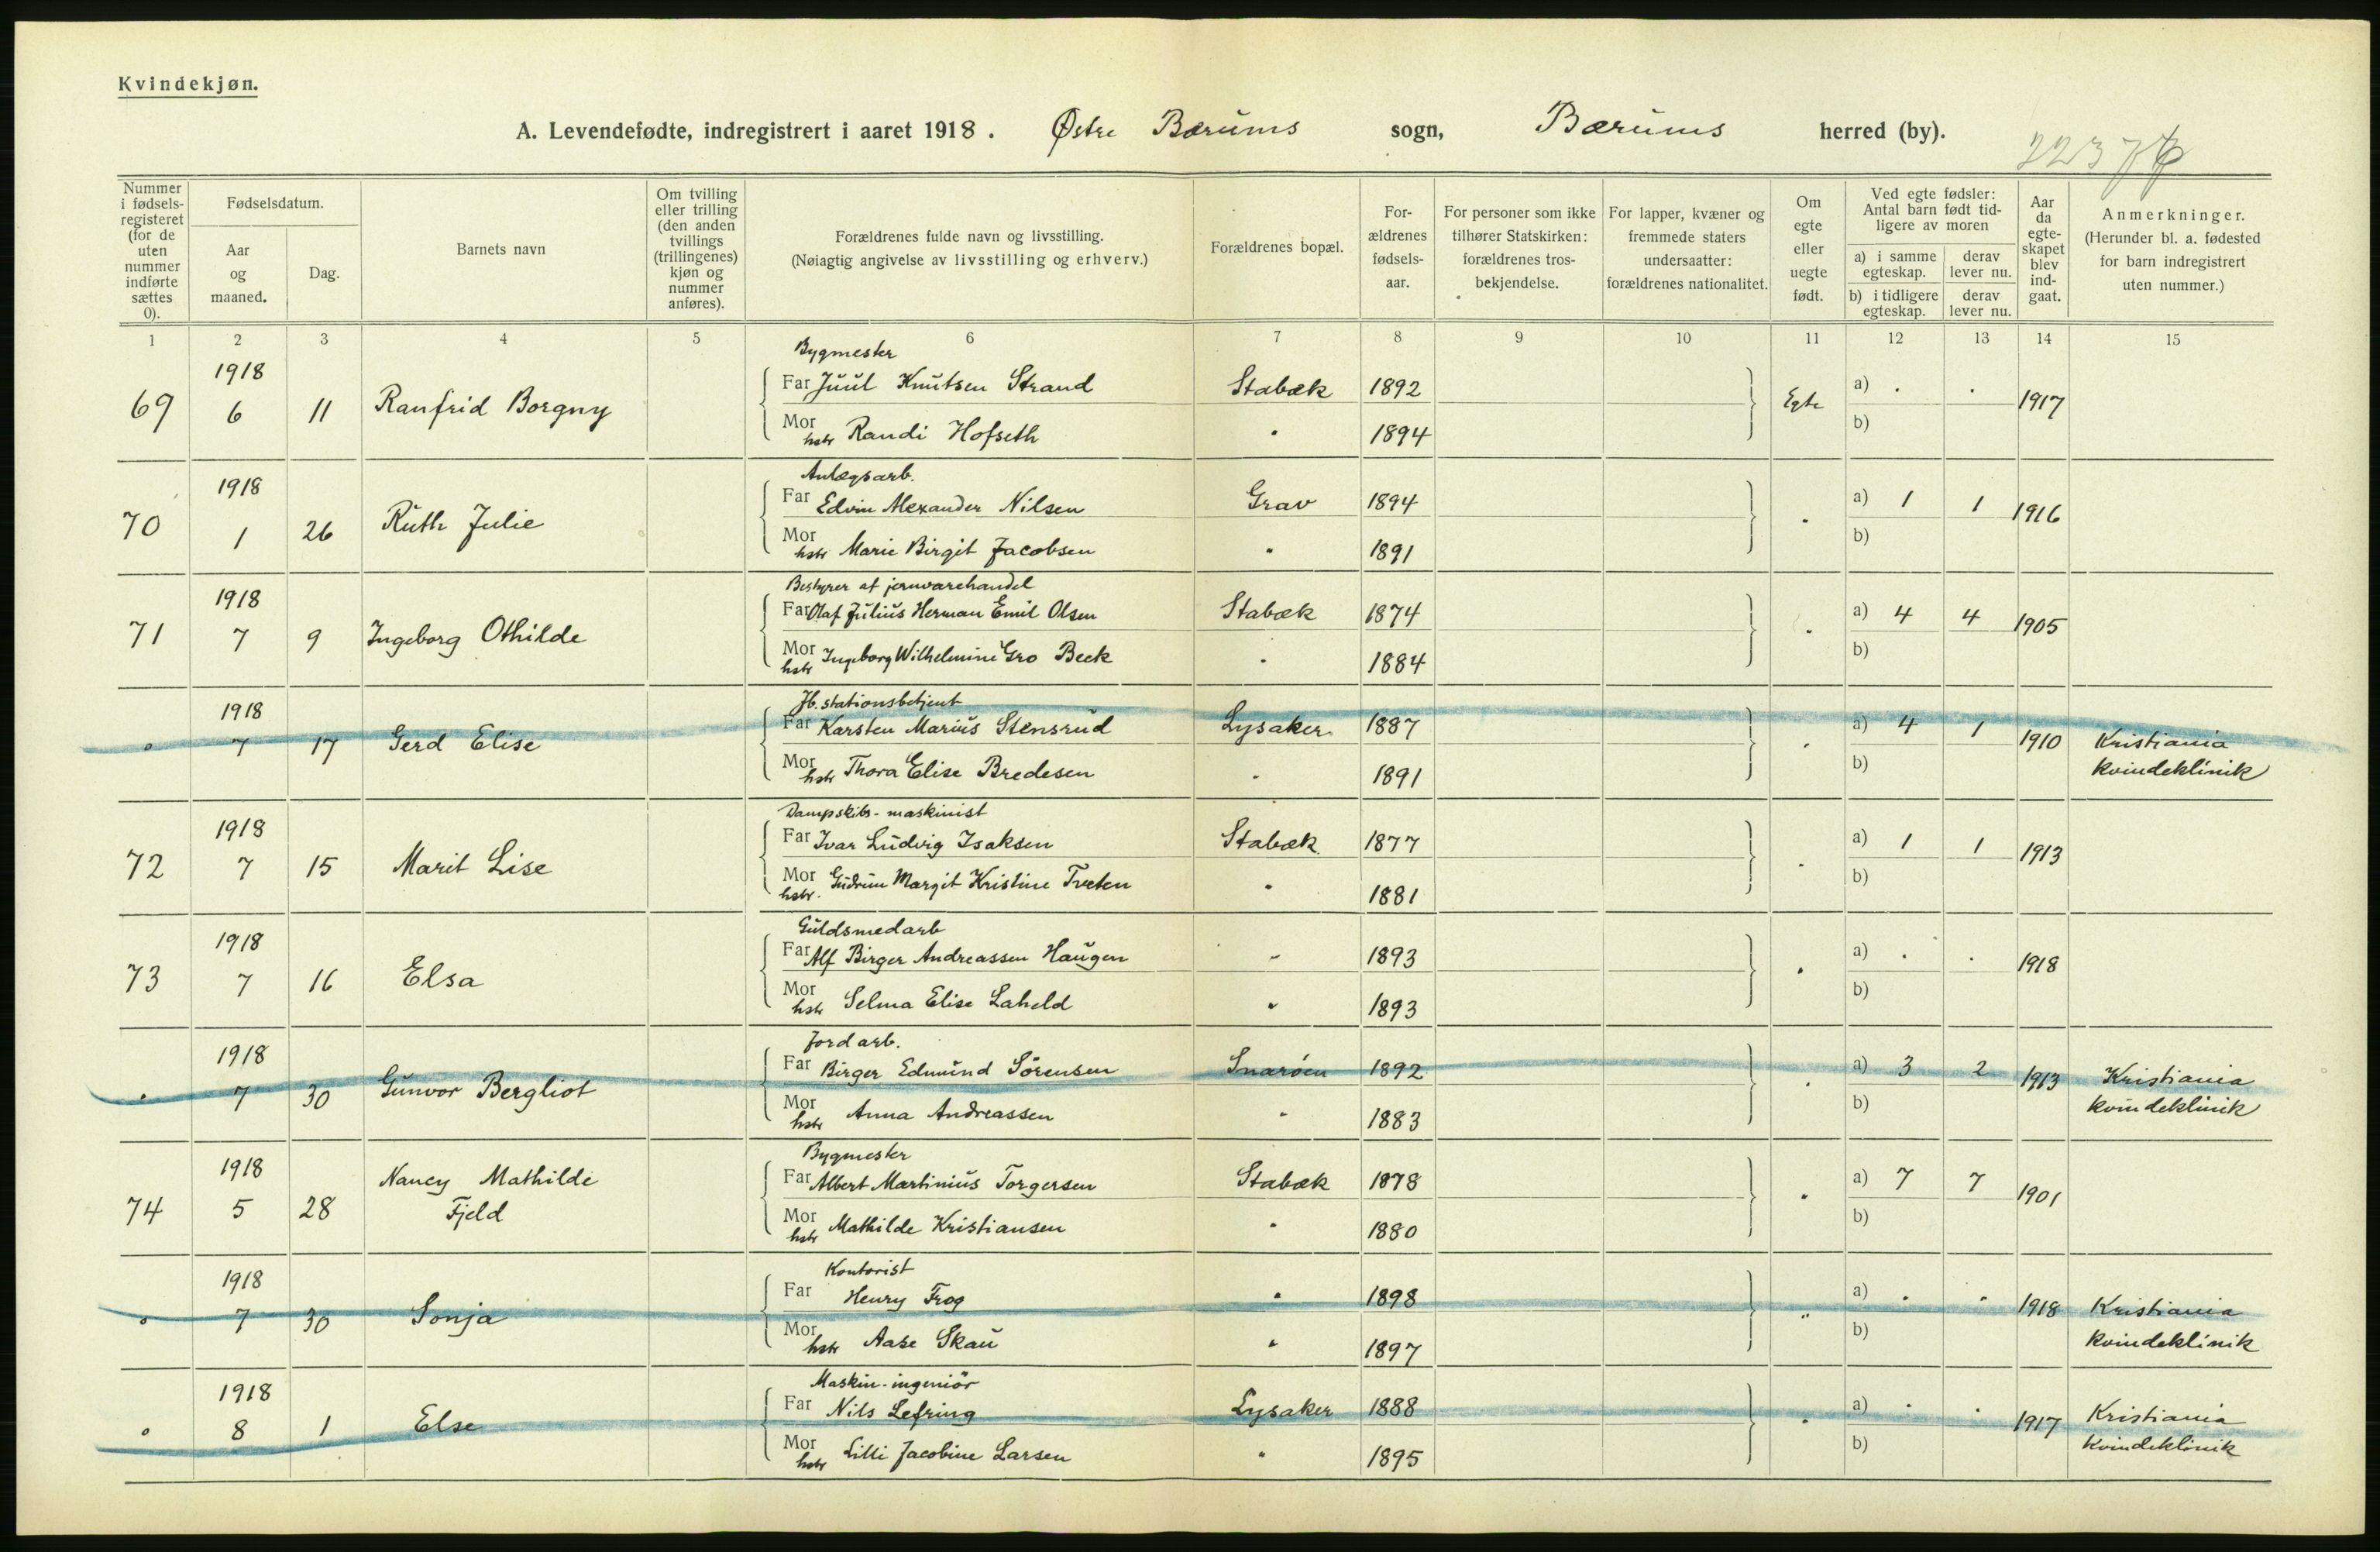 Kvindekjøn.
A. Levendefødte, indregistrert i aaret 1918. Østre Bærums sogn, Bærums herred (by).
Nummer i fødsels-registeret (for de uten nummer indførte sættes 0).
Fødselsdatum.
Aar og maaned.
Dag.
Barnets navn
Om tvilling eller trilling (den anden tvillings (trillingenes) kjøn og nummer anføres).
Forældrenes fulde navn og livsstilling.
(Nøiagtig angivelse av livsstilling og erhverv.)
Forældrenes bopæl.
For-ældrenes fødsels-aar.
For personer som ikke tilhører Statskirken: forældrenes tros-bekjendelse.
For lapper, kvæner og fremmede staters undersaatter: forældrenes nationalitet.
Om egte eller uegte født.
Ved egte fødsler: Antal barn født tid-ligere av moren
a) i samme egteskap.
derav lever nu.
b) i tidligere egteskap.
derav lever nu.
Aar da egte-skapet blev ind-gaat.
Anmerkninger.
(Herunder bl. a. fødested for barn indregistrert uten nummer.)
1 2 3 4 5 6 7 8 9 10 11 12 13 14 15
Bygmester
1918
69 6 11 Ranfrid Borgny Far Juul Knutsen Strand Stabæk 1892 Egte a) . . 1917
Mor hstr Randi Hofseth " 1894 b)
Anlægsarb.
1918
70 1 26 Ruth Julie Far Edvin Alexander Nilsen Grav 1894 " a) 1 1 1916
Mor hstr Marie Birgit Jacobsen " 1891 b)
Bestyrer af jernvarehandel
1918
71 7 9 Ingeborg Othilde Far Olaf Julius Herman Emil Olsen Stabæk 1874 " a) 4 4 1905
Mor hstr Ingeborg Wilhelmine Gro Beck " 1884 b)
Jb. stationsbetjent
1918
0 7 17 Gerd Elise Far Karsten Marius Stensrud Lysaker 1887 " a) 4 1 1910 Kristiania
Mor hstr Thora Elise Bredesen " 1891 b) kvindeklinik
Dampskibs-maskinist
1918
72 7 15 Marit Lise Far Ivar Ludvig Isaksen Stabæk 1877 " a) 1 1 1913
Mor hstr. Gudrun Margit Kristine Tveten " 1881 b)
Guldsmedarb
1918
73 7 16 Elsa Far Alf Birger Andreassen Haugen " 1893 " a) . . 1918
Mor hstr Selma Elise Laheld " 1893 b)
Jordarb.
1918
0 7 30 Gunvor Bergliot Far Birger Edmund Sörensen Snaröen 1892 " a) 3 2 1913 Kristiania
Mor hstr Anna Andreassen " 1883 b) kvindeklinik
Bygmester
1918
74 5 28 Nancy Mathilde Far Albert Martinius Torgersen Stabæk 1878 " a) 7 7 1901
Fjeld Mor hstr Mathilde Kristiansen " 1880 b)
Kontorist
1918
0 7 30 Sonja Far Henry Frog " 1898 " a) . . 1918 Kristiania
Mor hstr Aase Skau " 1897 b) kvindeklinik
Maskin-ingeniör
1918
0 8 1 Else Far Nils Lefring Lysaker 1888 " a) . . 1917 Kristiania
Mor hstr Lilli Jacobine Larsen " 1895 b) kvindeklinik